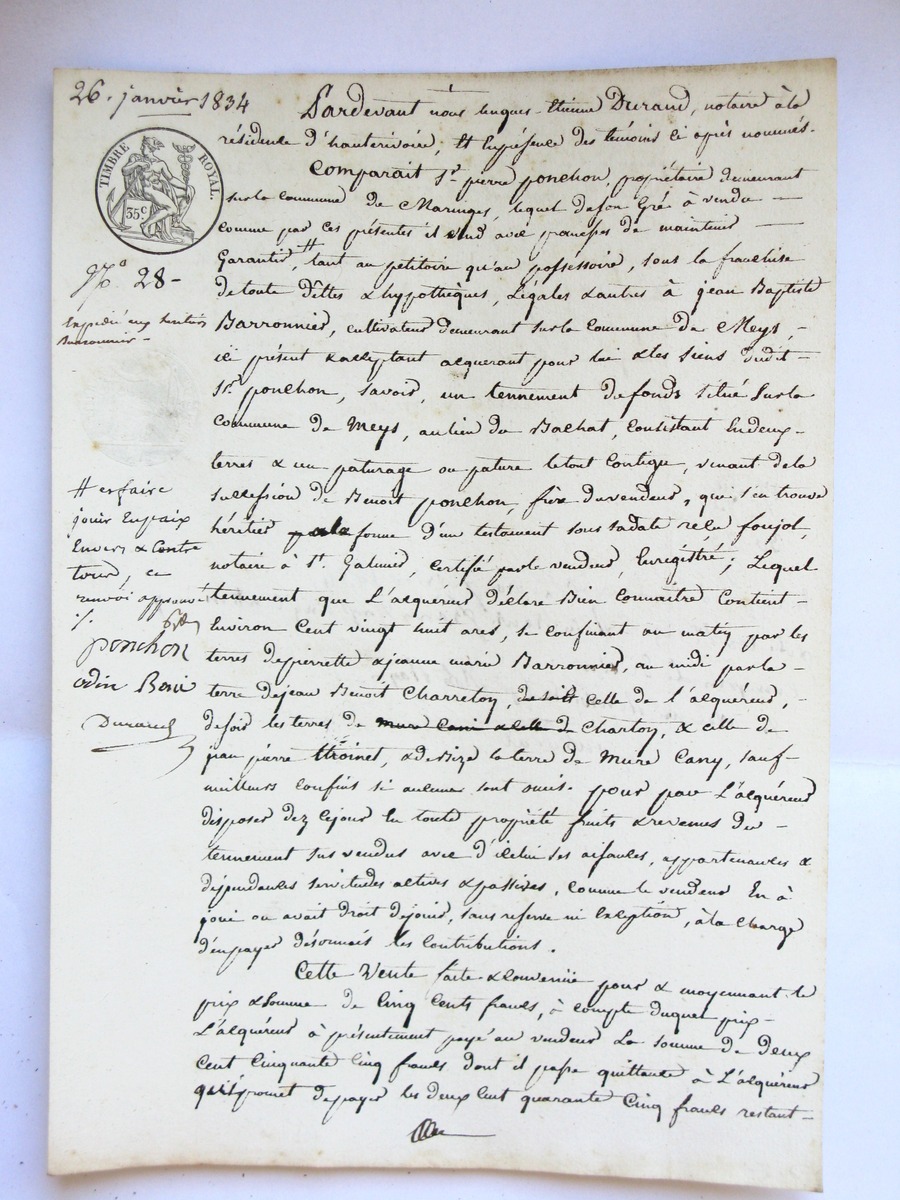 26. janvier 1834
Pardevant nous hugues-Etienne Durand, notaire à la
résidence d'hauterivoire, Et En présence des témoins ci après nommés.
Comparait Sr. pierre ponchon, propriétaire demeurant
sur la Commune de Maringes, lequel de son Gré à vendu
comme par ces présentes il vend avec promesses de maintenir
Garantir, # tant au pétitoire qu'au possessoire, sous la franchise
de toute dettes & hypothèques, Légales & autres à jean Baptiste
Barronnier, cultivateur demeurant sur la Commune de Meys,
ici présent & acceptant acquerant pour lui & les siens dudit
Sr. ponchon, savoir, un tennement de fonds situé Sur la
Commune de Meys, au lieu du Bachat, Consistant En deux
terres & un paturage ou pature le tout Contigu, venant de la
succession de Benoit ponchon, frère du vendeur, qui s'en trouve
héritier forme d'un testament sous sa date reçu foujol,
notaire à St. Galmier, Certifié par le vendeur, Enregistré; Lequel
tennement que L'acquereur déclare Bien Connaitre Contient
Environ Cent vingt huit ares, se Confinant au matin par les
terres de pierrette & jeanne marie Barronnier, au midi par la
terre de jean Benoit Charreton, Celle de l'acquéreur,
de soir les terres de mure Cany & Celle de Charton, & Celle de
jean pierre thoinet, & de Bize la terre de Mure Cany, sauf
meilleurs Confins si aucuns sont omis. pour par L'acquéreur
disposer dez ce jour En toute propriété fruits & revenus du
tennement sus vendus avec d'icelui ses aisances, appartenances &
dépendances servitudes actives & passives, Comme le vendeur En à
joui ou avait droit d'ejouir, sans reserve ni Exception, à la Charge
d'en payer désormais les Contributions.
Cette Vente faite & Convenüe pour & moyennant le
prix & Somme de Cinq Cents francs, à Compte duquel prix
L'acquéreur à présentement payé au vendeur La Somme de Deux
Cent Cinquante Cinq francs dont il passe quittance à L'acquéreur
qui promet de payer les deux Cent quarante Cinq francs restant
TIMBRE ROYAL.
35c
No. 28-
Expédié aux héritiers
Barronnier-
# et faire
jouir En paix
Envers & Contre
tous, ce
renvoi approuvé
ponchon
odin
Durand